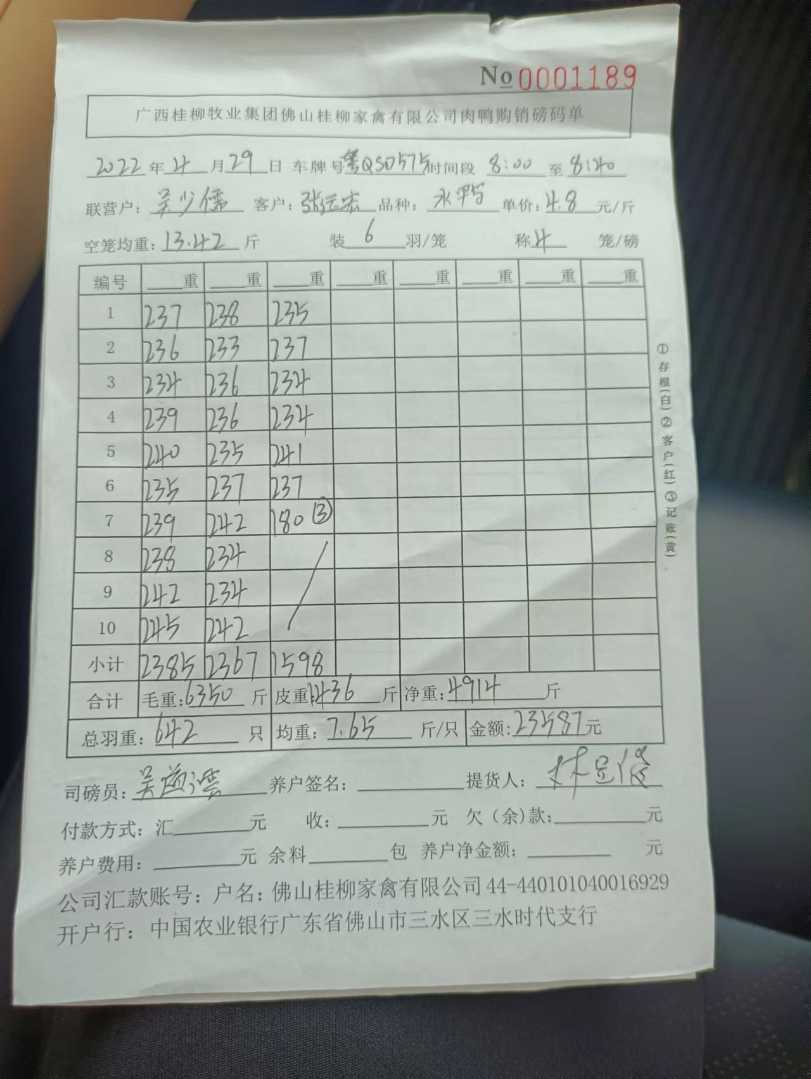 No 0001189
广西桂柳牧业集团佛山桂柳家禽有限公司肉鸭购销磅码单
2022年4月29日 车牌号粤QS0575时间段 8:00 至 8:40
联营户：吴少儒 客户：张运宏 品种： 单价：4.8 元/斤
空笼均重：13.42 斤 装 6 羽/笼 称 4 笼/磅
编号 重 重 重 重 重 重 重 重
1 237 238 235
2 236 233 237
3 234 236 234
4 239 236 234
5 240 235 241
6 235 237 237
7 239 242 180 ③
8 238 234
9 242 234
10 245 242
小计 2385 2367 1598
合计 毛重：6350 斤 皮重：1436 斤 净重：4914 斤
总羽重：642 只 均重：7.65 斤/只 金额：23587元
司磅员： 养户签名： 提货人：
付款方式：汇 元 收： 元 欠（余）款： 元
养户费用： 元 余料 包 养户净金额： 元
公司汇款账号：户名：佛山桂柳家禽有限公司 44-440101040016929
开户行：中国农业银行广东省佛山市三水区三水时代支行
①存根(白)②客户(红)③记账(黄)